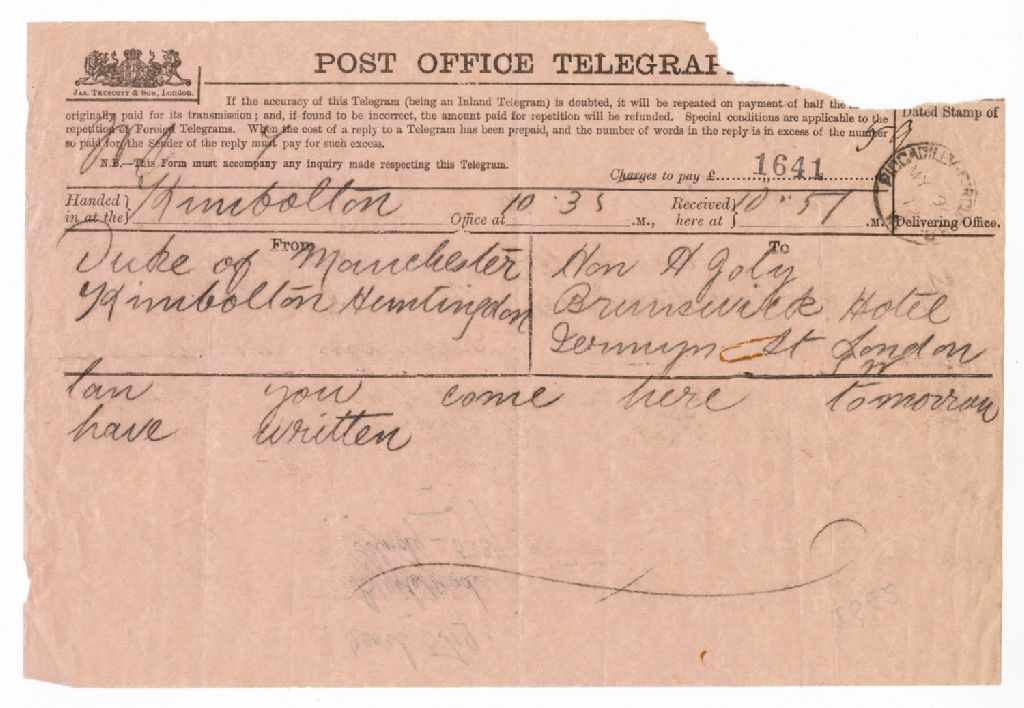 POST OFFICE TELEGRAP
Jas. Truscott & Son, London.
If the accuracy of this Telegram (being an Inland Telegram) is doubted, it will be repeated on payment of half the
originally paid for its transmission; and, if found to be incorrect, the amount paid for repetition will be refunded. Special conditions are applicable to the
repetition of Foreign Telegrams. When the cost of a reply to a Telegram has been prepaid, and the number of words in the reply is in excess of the number
so paid for, the Sender of the reply must pay for such excess.
N.B.—This Form must accompany any inquiry made respecting this Telegram.
Dated Stamp of
Charges to pay £ 1641
PICCADILLY
MY
Delivering Office.
Handed in at the Kimbolton Office at 10.35 .M., Received here at 10.51 .M.
From
Duke of Manchester
Kimbolton Huntingdon
To
Hon H Joly
Brunswick Hotel
Jermyn St London
Can you come here tomorrow
have written